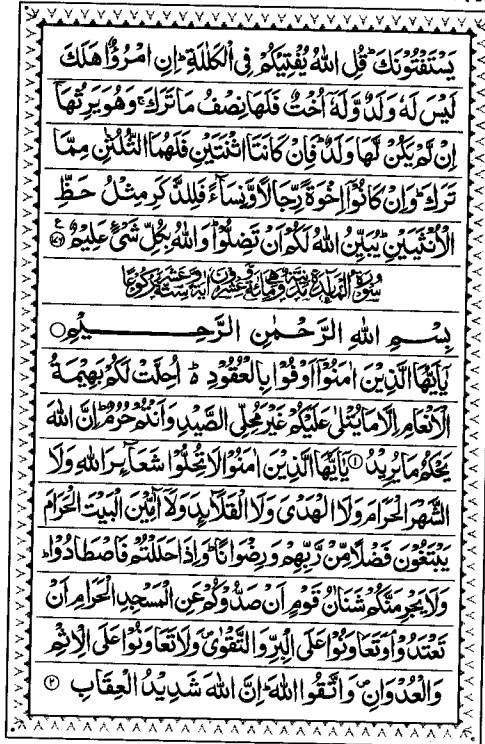 يَسْتَفْتُوْنَكَ ؕ قُلِ اللهُ يُفْتِيْكُمْ فِى الْكَلٰلَةِ ؕ اِنِ امْرُؤٌا هَلَكَ
لَيْسَ لَهٗ وَلَدٌ وَّلَهٗۤ اُخْتٌ فَلَهَا نِصْفُ مَا تَرَكَ ۚ وَهُوَ يَرِثُهَاۤ
اِنْ لَّمْ يَكُنْ لَّهَا وَلَدٌ ؕ فَاِنْ كَانَتَا اثْنَتَيْنِ فَلَهُمَا الثُّلُثٰنِ مِمَّا
تَرَكَ ؕ وَاِنْ كَانُوْۤا اِخْوَةً رِّجَالًا وَّنِسَآءً فَلِلذَّكَرِ مِثْلُ حَظِّ
الْاُنْثَيَيْنِ ؕ يُبَيِّنُ اللهُ لَكُمْ اَنْ تَضِلُّوْا ؕ وَاللهُ بِكُلِّ شَىْءٍ عَلِيْمٌ ﴿۱۷۶﴾ ع
سُوْرَةُ الْمَآئِدَةِ مَدَنِيَّةٌ وَّهِىَ مِائَةٌ وَّعِشْرُوْنَ اٰيَةً وَّسِتَّةَ عَشَرَ رُكُوْعًا
بِسْمِ اللهِ الرَّحْمٰنِ الرَّحِيْمِ ○
يٰۤاَيُّهَا الَّذِيْنَ اٰمَنُوْۤا اَوْفُوْا بِالْعُقُوْدِ ؕ اُحِلَّتْ لَكُمْ بَهِيْمَةُ
الْاَنْعَامِ اِلَّا مَا يُتْلٰى عَلَيْكُمْ غَيْرَ مُحِلِّى الصَّيْدِ وَاَنْتُمْ حُرُمٌ ؕ اِنَّ اللهَ
يَحْكُمُ مَا يُرِيْدُ ﴿۱﴾ يٰۤاَيُّهَا الَّذِيْنَ اٰمَنُوْا لَا تُحِلُّوْا شَعَآئِرَ اللهِ وَلَا
الشَّهْرَ الْحَرَامَ وَلَا الْهَدْىَ وَلَا الْقَلَآئِدَ وَلَاۤ آٰمِّيْنَ الْبَيْتَ الْحَرَامَ
يَبْتَغُوْنَ فَضْلًا مِّنْ رَّبِّهِمْ وَرِضْوَانًا ؕ وَاِذَا حَلَلْتُمْ فَاصْطَادُوْا ؕ
وَلَا يَجْرِمَنَّكُمْ شَنَاٰنُ قَوْمٍ اَنْ صَدُّوْكُمْ عَنِ الْمَسْجِدِ الْحَرَامِ اَنْ
تَعْتَدُوْا ۘ وَتَعَاوَنُوْا عَلَى الْبِرِّ وَالتَّقْوٰى ۪ وَلَا تَعَاوَنُوْا عَلَى الْاِثْمِ
وَالْعُدْوَانِ ۪ وَاتَّقُوا اللهَ ؕ اِنَّ اللهَ شَدِيْدُ الْعِقَابِ ﴿۲﴾